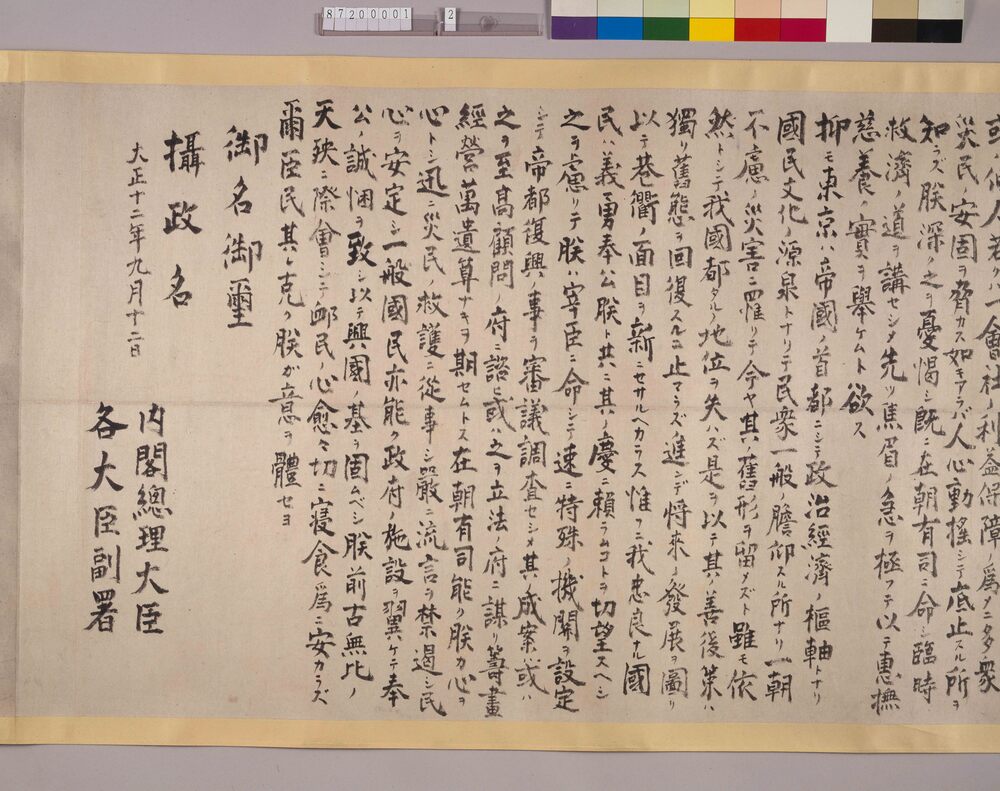 87200001 2
或ハ他人若クハ一會社ノ利益保障ノ爲メニ多衆
災民ノ安固ヲ脅カス如キアラバ人心動搖シテ底止スル所ヲ
知ラズ朕深ク之ヲ憂惕シ既ニ在朝有司ニ命シ臨時
救濟ノ道ヲ講セシメ先ツ焦眉ノ急ヲ極フテ以テ惠撫
慈養ノ實ヲ舉ケムト欲ス
抑モ東京ハ帝國ノ首都ニシテ政治經濟ノ樞軸トナリ
國民文化ノ源泉トナリテ民衆一般ノ瞻仰スル所ナリ一朝
不慮ノ災害ニ罹リテ今ヤ其ノ舊形ヲ留メズト雖モ依
然トシテ我國都タルノ地位ヲ失ハズ是ヲ以テ其ノ善後策ハ
獨リ舊態ヲ回復スルニ止マラズ進ンデ将来ノ發展ヲ圖リ
以テ巷衢ノ面目ヲ新ニセサルヘカラス惟フニ我忠良ナル國
民ハ義勇奉公朕ト共ニ其ノ慶ニ賴ラムコトヲ切望スヘシ
之ヲ慮リテ朕ハ宰臣ニ命シテ速ニ特殊ノ機關ヲ設定
シテ帝都復興ノ事ヲ審議調査セシメ其ノ成案ハ或ハ
之ヲ至高顧問ノ府ニ諮ヒ或ハ之ヲ立法ノ府ニ謀リ籌畫
經營萬遺算ナキヲ期セムトス在朝有司能ク朕カ心ヲ
心トシ迅ニ災民ノ救護ニ從事シ嚴ニ流言ヲ禁遏シ民
心ヲ安定シ一般國民亦能ク政府ノ施設ヲ翼ケテ奉
公ノ誠悃ヲ致シ以テ興國ノ基ヲ固ムベシ朕前古無比ノ
天殃ニ際會シテ卹民ノ心愈々切ニ寢食爲ニ安カラズ
爾臣民其レ克ク朕ガ意ヲ體セヨ
御名御璽
攝政名
大正十二年九月十二日
内閣總理大臣
各大臣副署